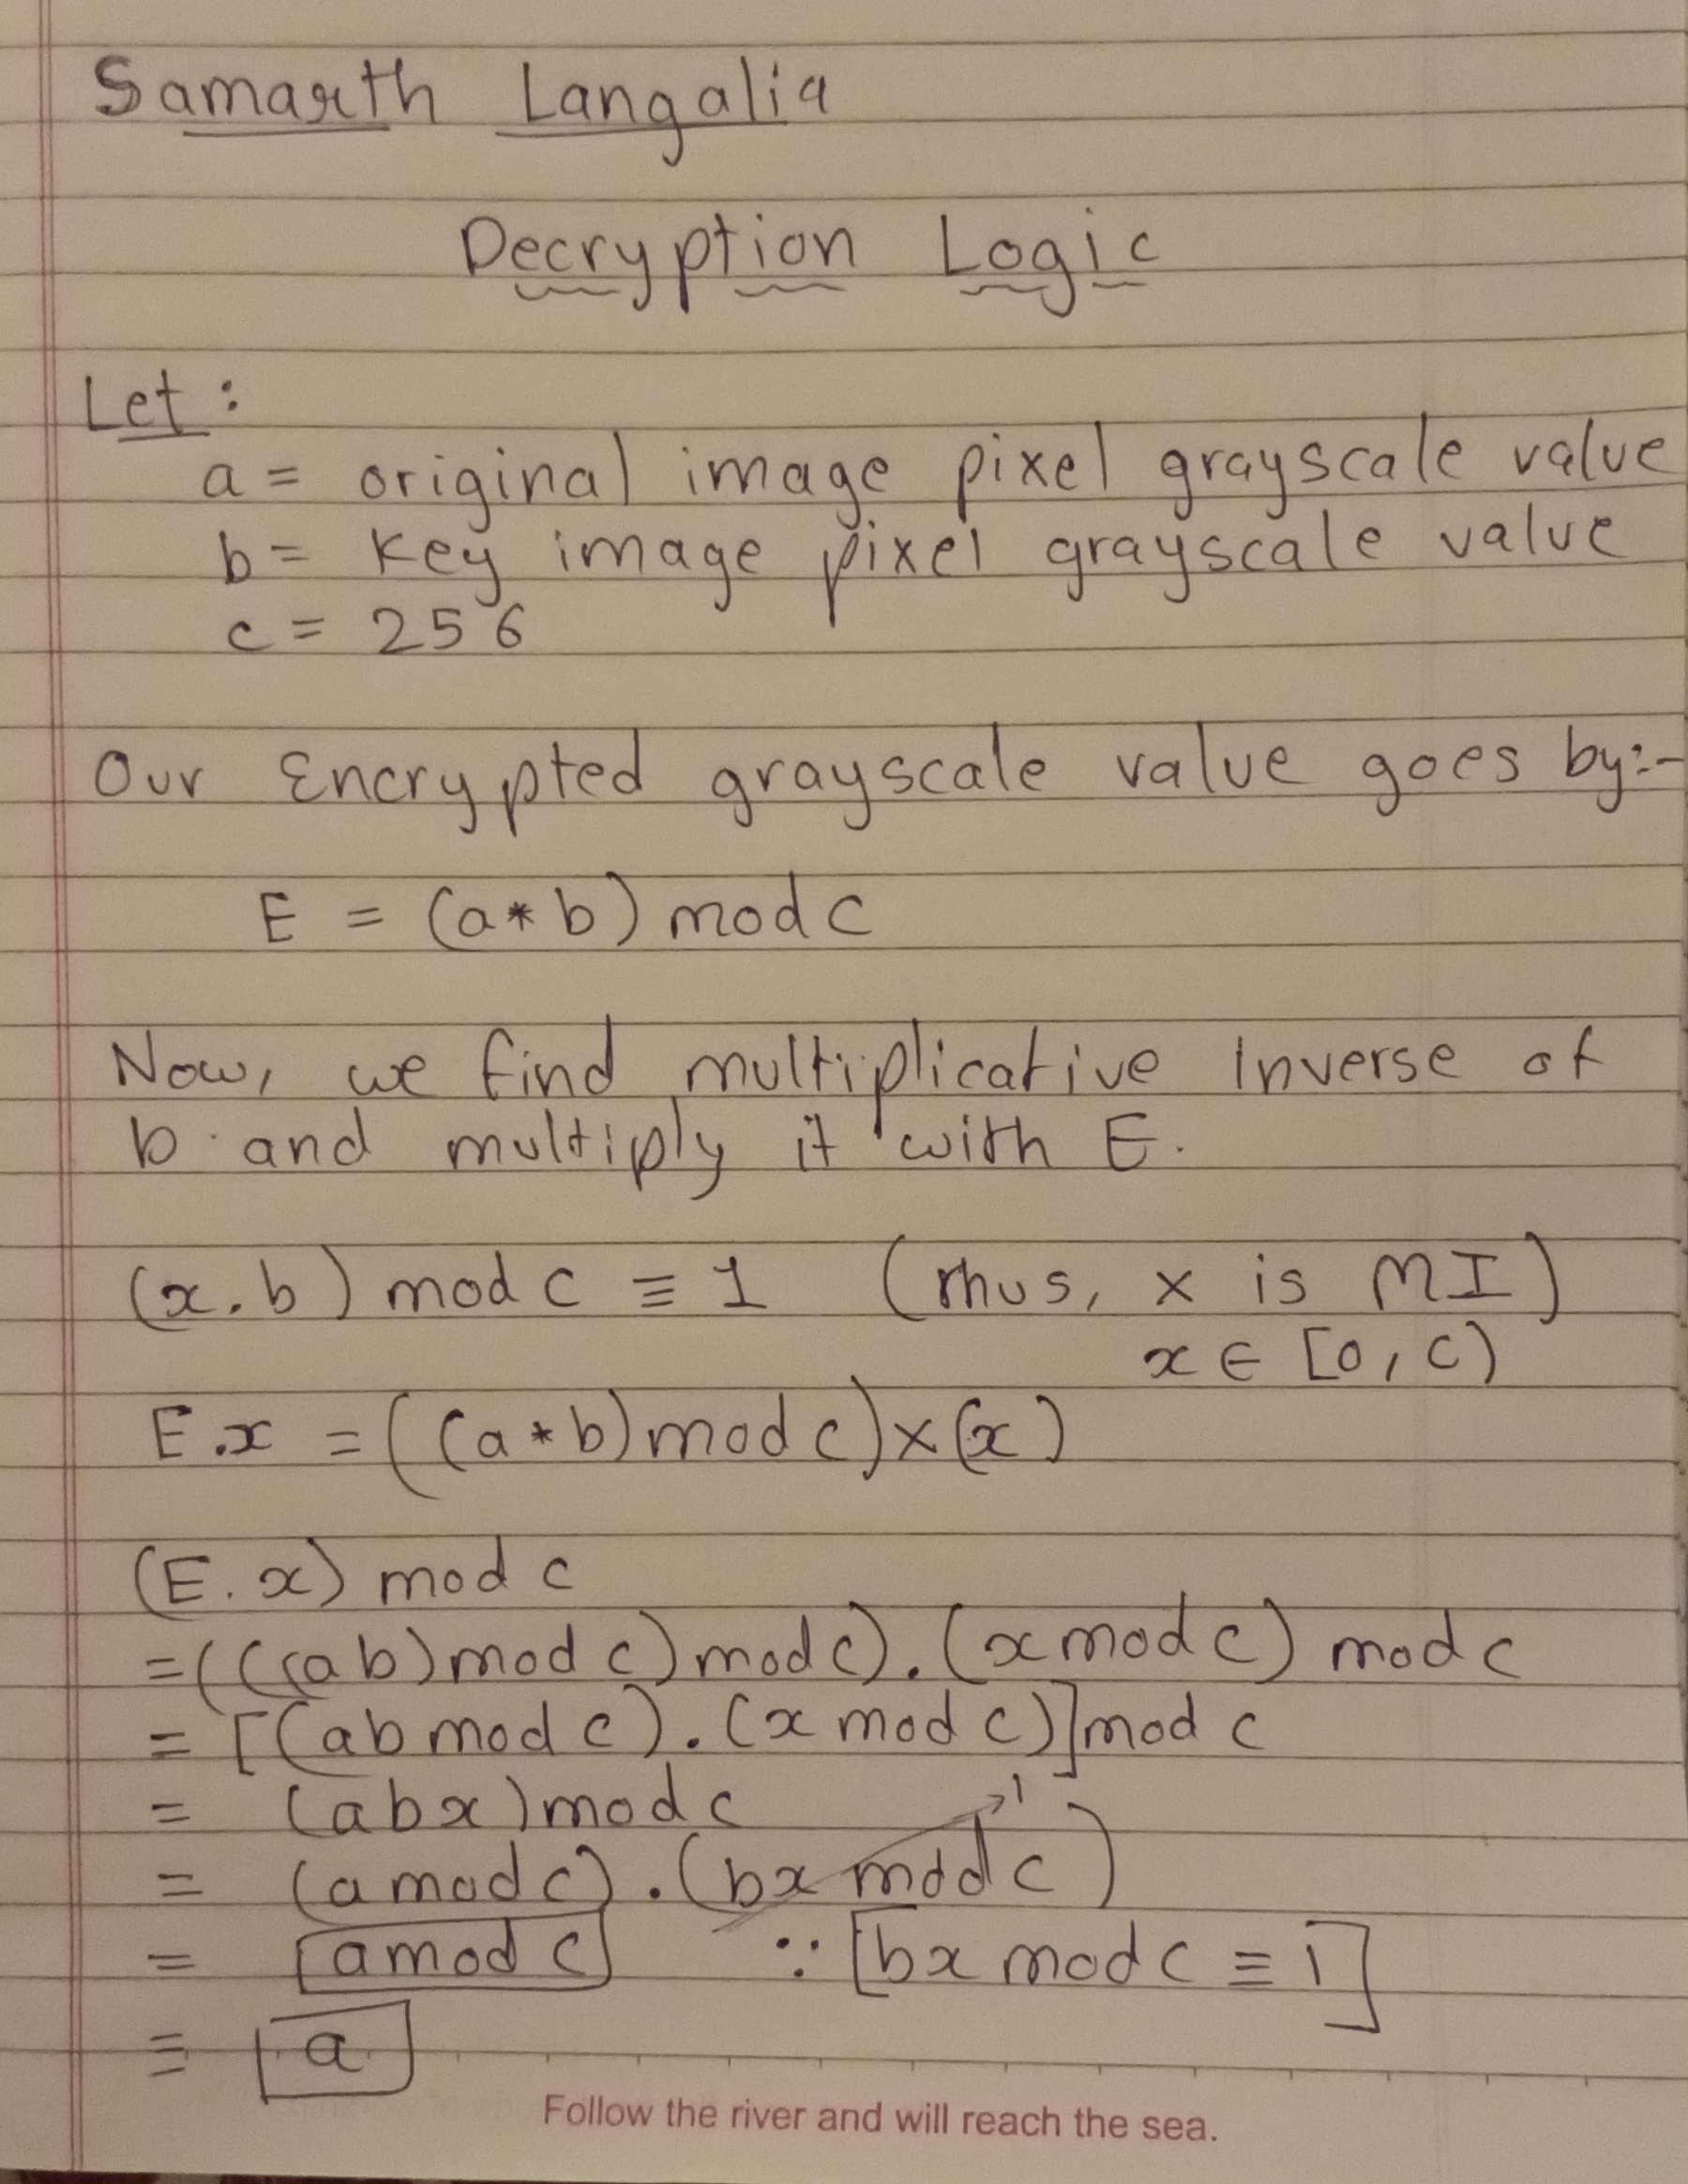 Samarth Langalia
Decryption Logic
Let :
a = original image pixel grayscale value
b = key image pixel grayscale value
c = 256
Our Encrypted grayscale value goes by:-
E = (a * b) mod c
Now, we find multiplicative Inverse of
b and multiply it with E.
(x . b) mod c ≡ 1 (Thus, x is MI)
x ∈ [0, c)
E . x = ((a * b) mod c) × (x)
(E . x) mod c
= (((ab) mod c) mod c) . (x mod c) mod c
= [(ab mod c) . (x mod c)] mod c
= (abx) mod c
= (a mod c) . (bx mod c) → 1
= a mod c ∵ [bx mod c ≡ 1]
≡ a
Follow the river and will reach the sea.